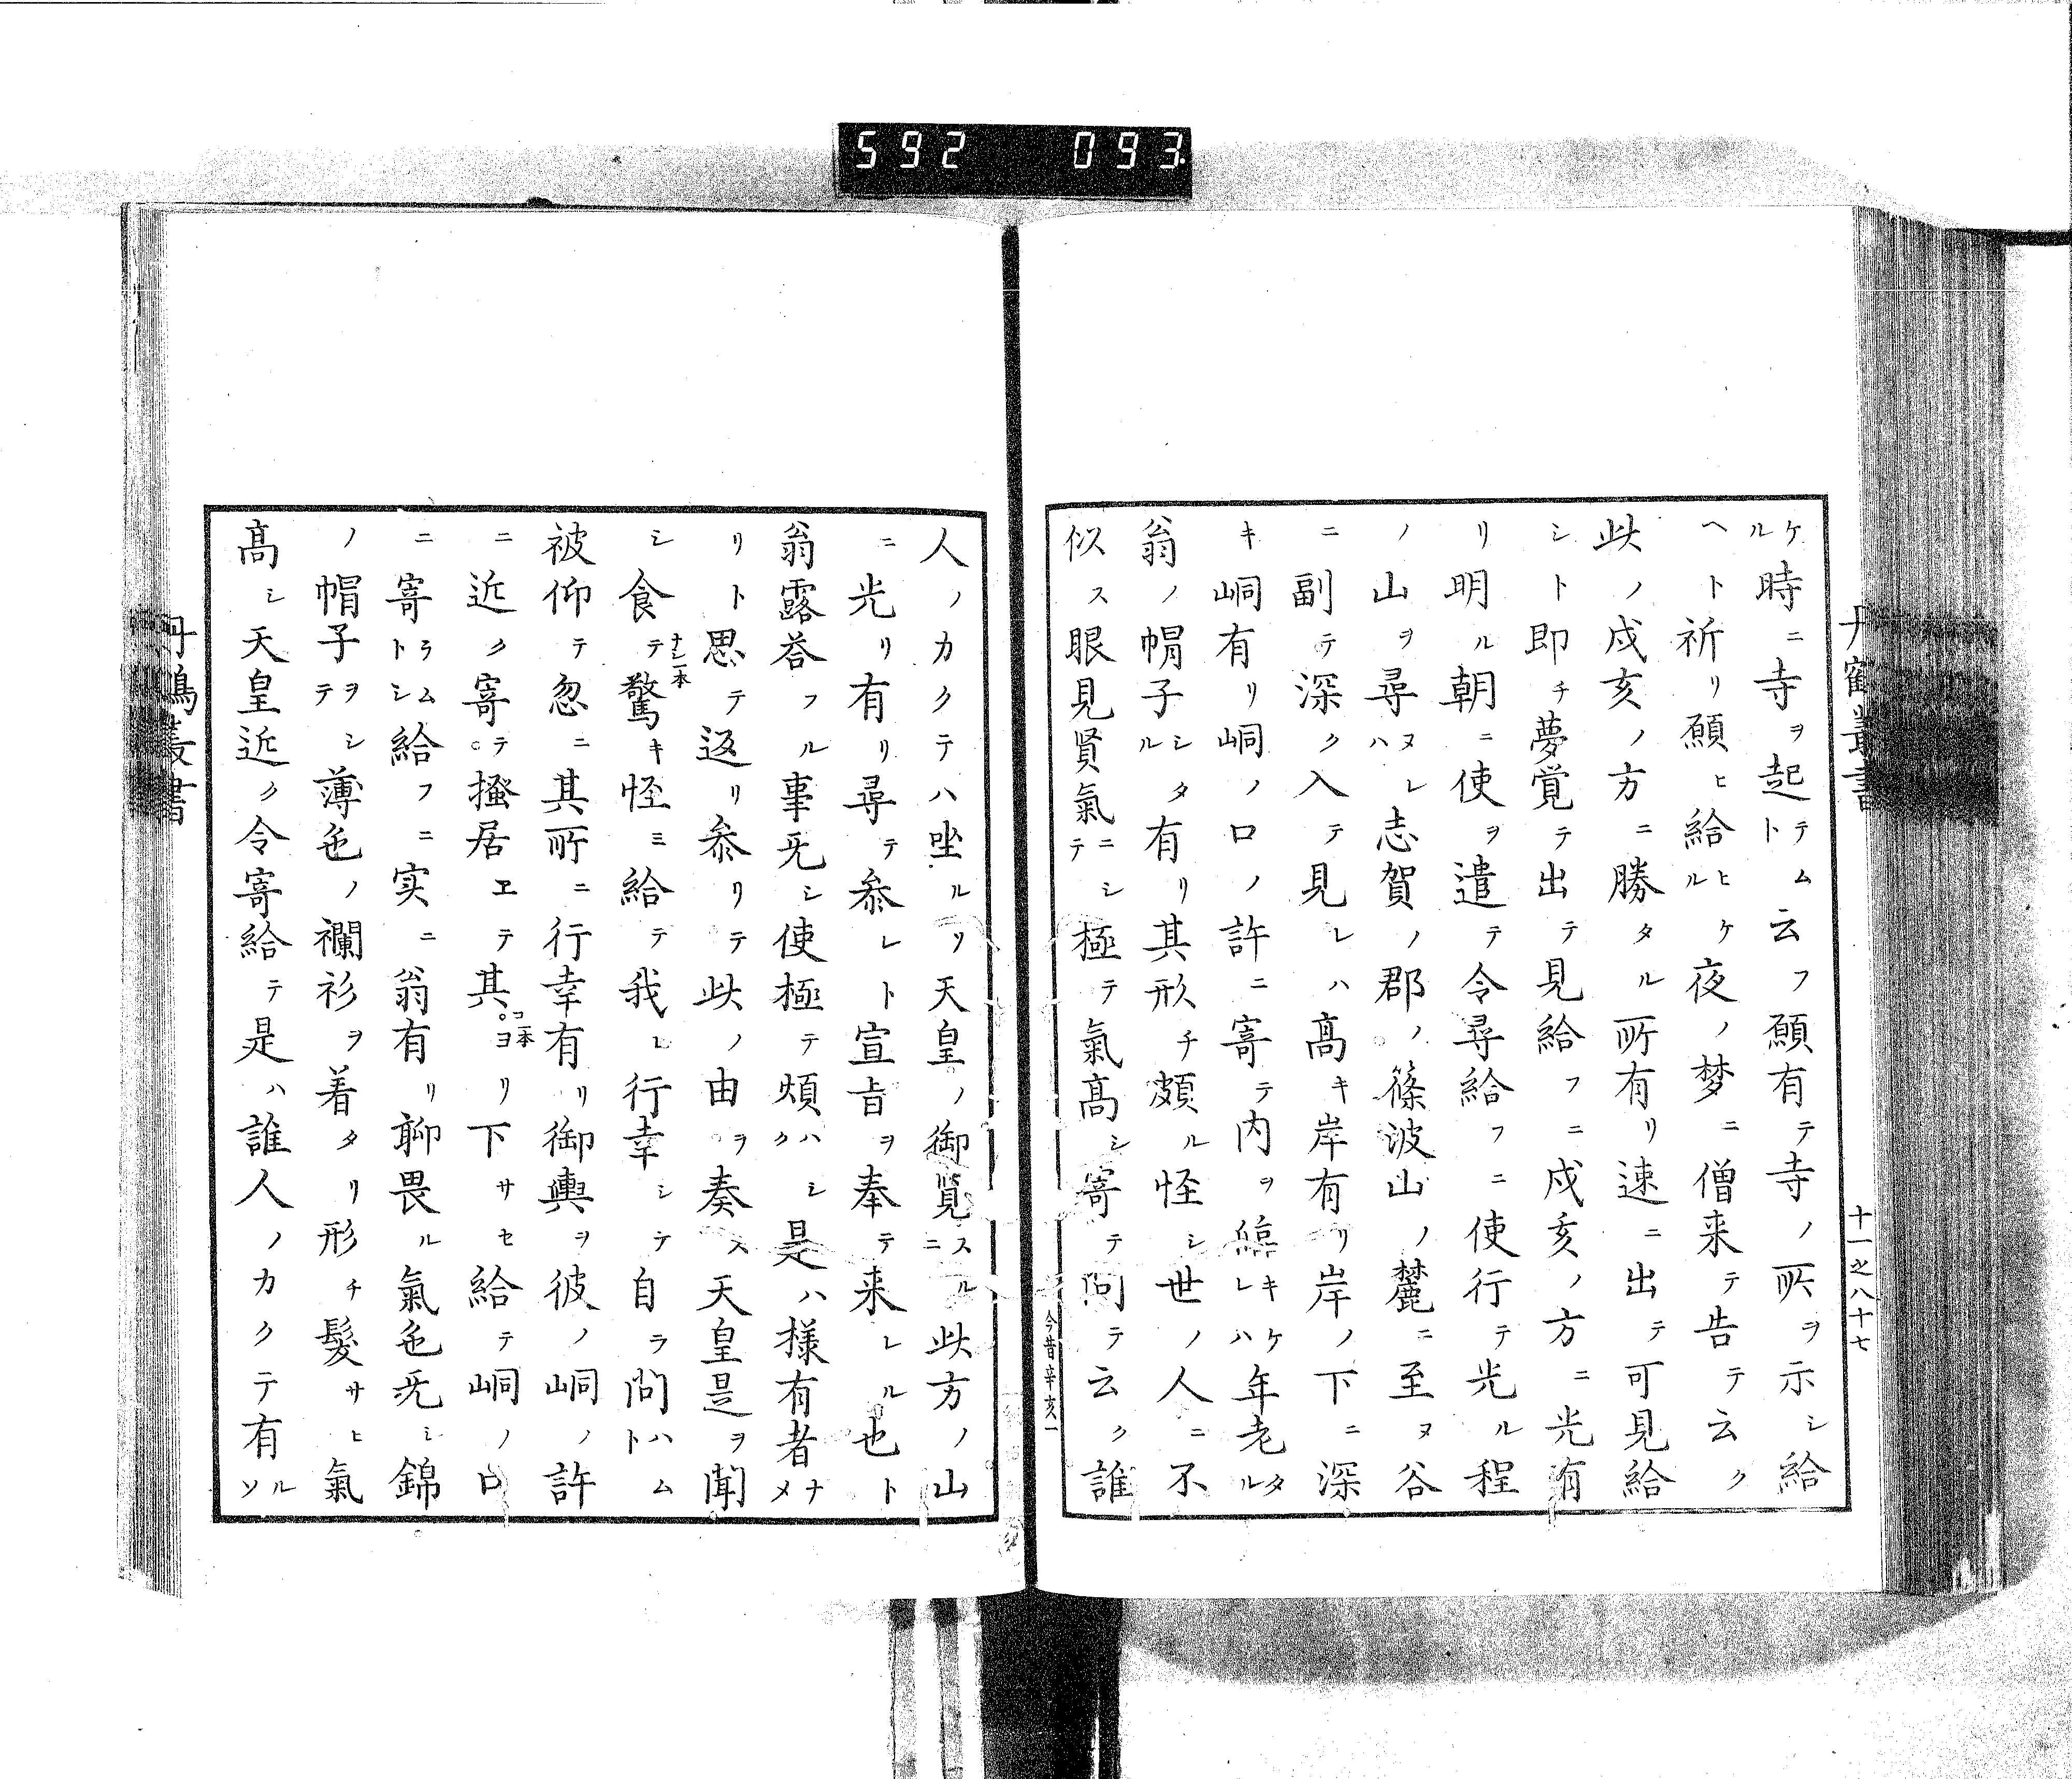 592 093
丹鶴叢書
十一之八十七
ケル時ニ寺ヲ起テムト云フ願有テ寺ノ所ヲ示シ給
ヘト祈リ願ヒ給ヒケル夜ノ梦ニ僧来テ告テ云ク
此ノ戌亥ノ方ニ勝タル所有リ速ニ出テ可見給
シト即チ夢覚テ出テ見給フニ戌亥ノ方ニ光有
リ明ル朝ニ使ヲ遣テ令尋給フニ使行テ光ル程
ノ山ヲ尋ヌレハ志賀ノ郡ノ篠波山ノ麓ニ至ヌ谷
ニ副テ深ク入テ見レハ髙キ岸有リ岸ノ下ニ深
キ峒有リ峒ノ口ノ許ニ寄テ内ヲ臨キケレハ年老タル
翁ノ帽子シタル有リ其形チ頗ル怪シ世ノ人ニ不
似ス眼見賢氣ニシテ極テ氣髙シ寄テ問テ云ク誰
今昔辛亥一
人ノカクテハ坐ルリ天皇ノ御覧スルニ此方ノ山
ニ光リ有リ尋テ参レト宣旨ヲ奉テ来レル也ト
翁露荅フル事旡シ使極テ煩ハシク是ハ様有者ナメ
リト思テ返リ参リテ此ノ由ヲ奏ス天皇是ヲ聞
シ食テナシ一本驚キ怪ミ給テ我レ行幸シテ自ラ問ハムト
被仰テ忽ニ其所ニ行幸有リ御輿ヲ彼ノ峒ノ許
ニ近ク寄テ掻居ヱテ其コ一本ヨリ下サセ給テ峒ノ口
ニ寄ラムトシ給フニ実ニ翁有リ聊畏ル氣色旡シ錦
ノ帽子ヲシテ薄色ノ襴衫ヲ着タリ形チ髮サヒ氣
髙シ天皇近ク令寄給テ是ハ誰人ノカクテ有ルソ
丹鶴叢書